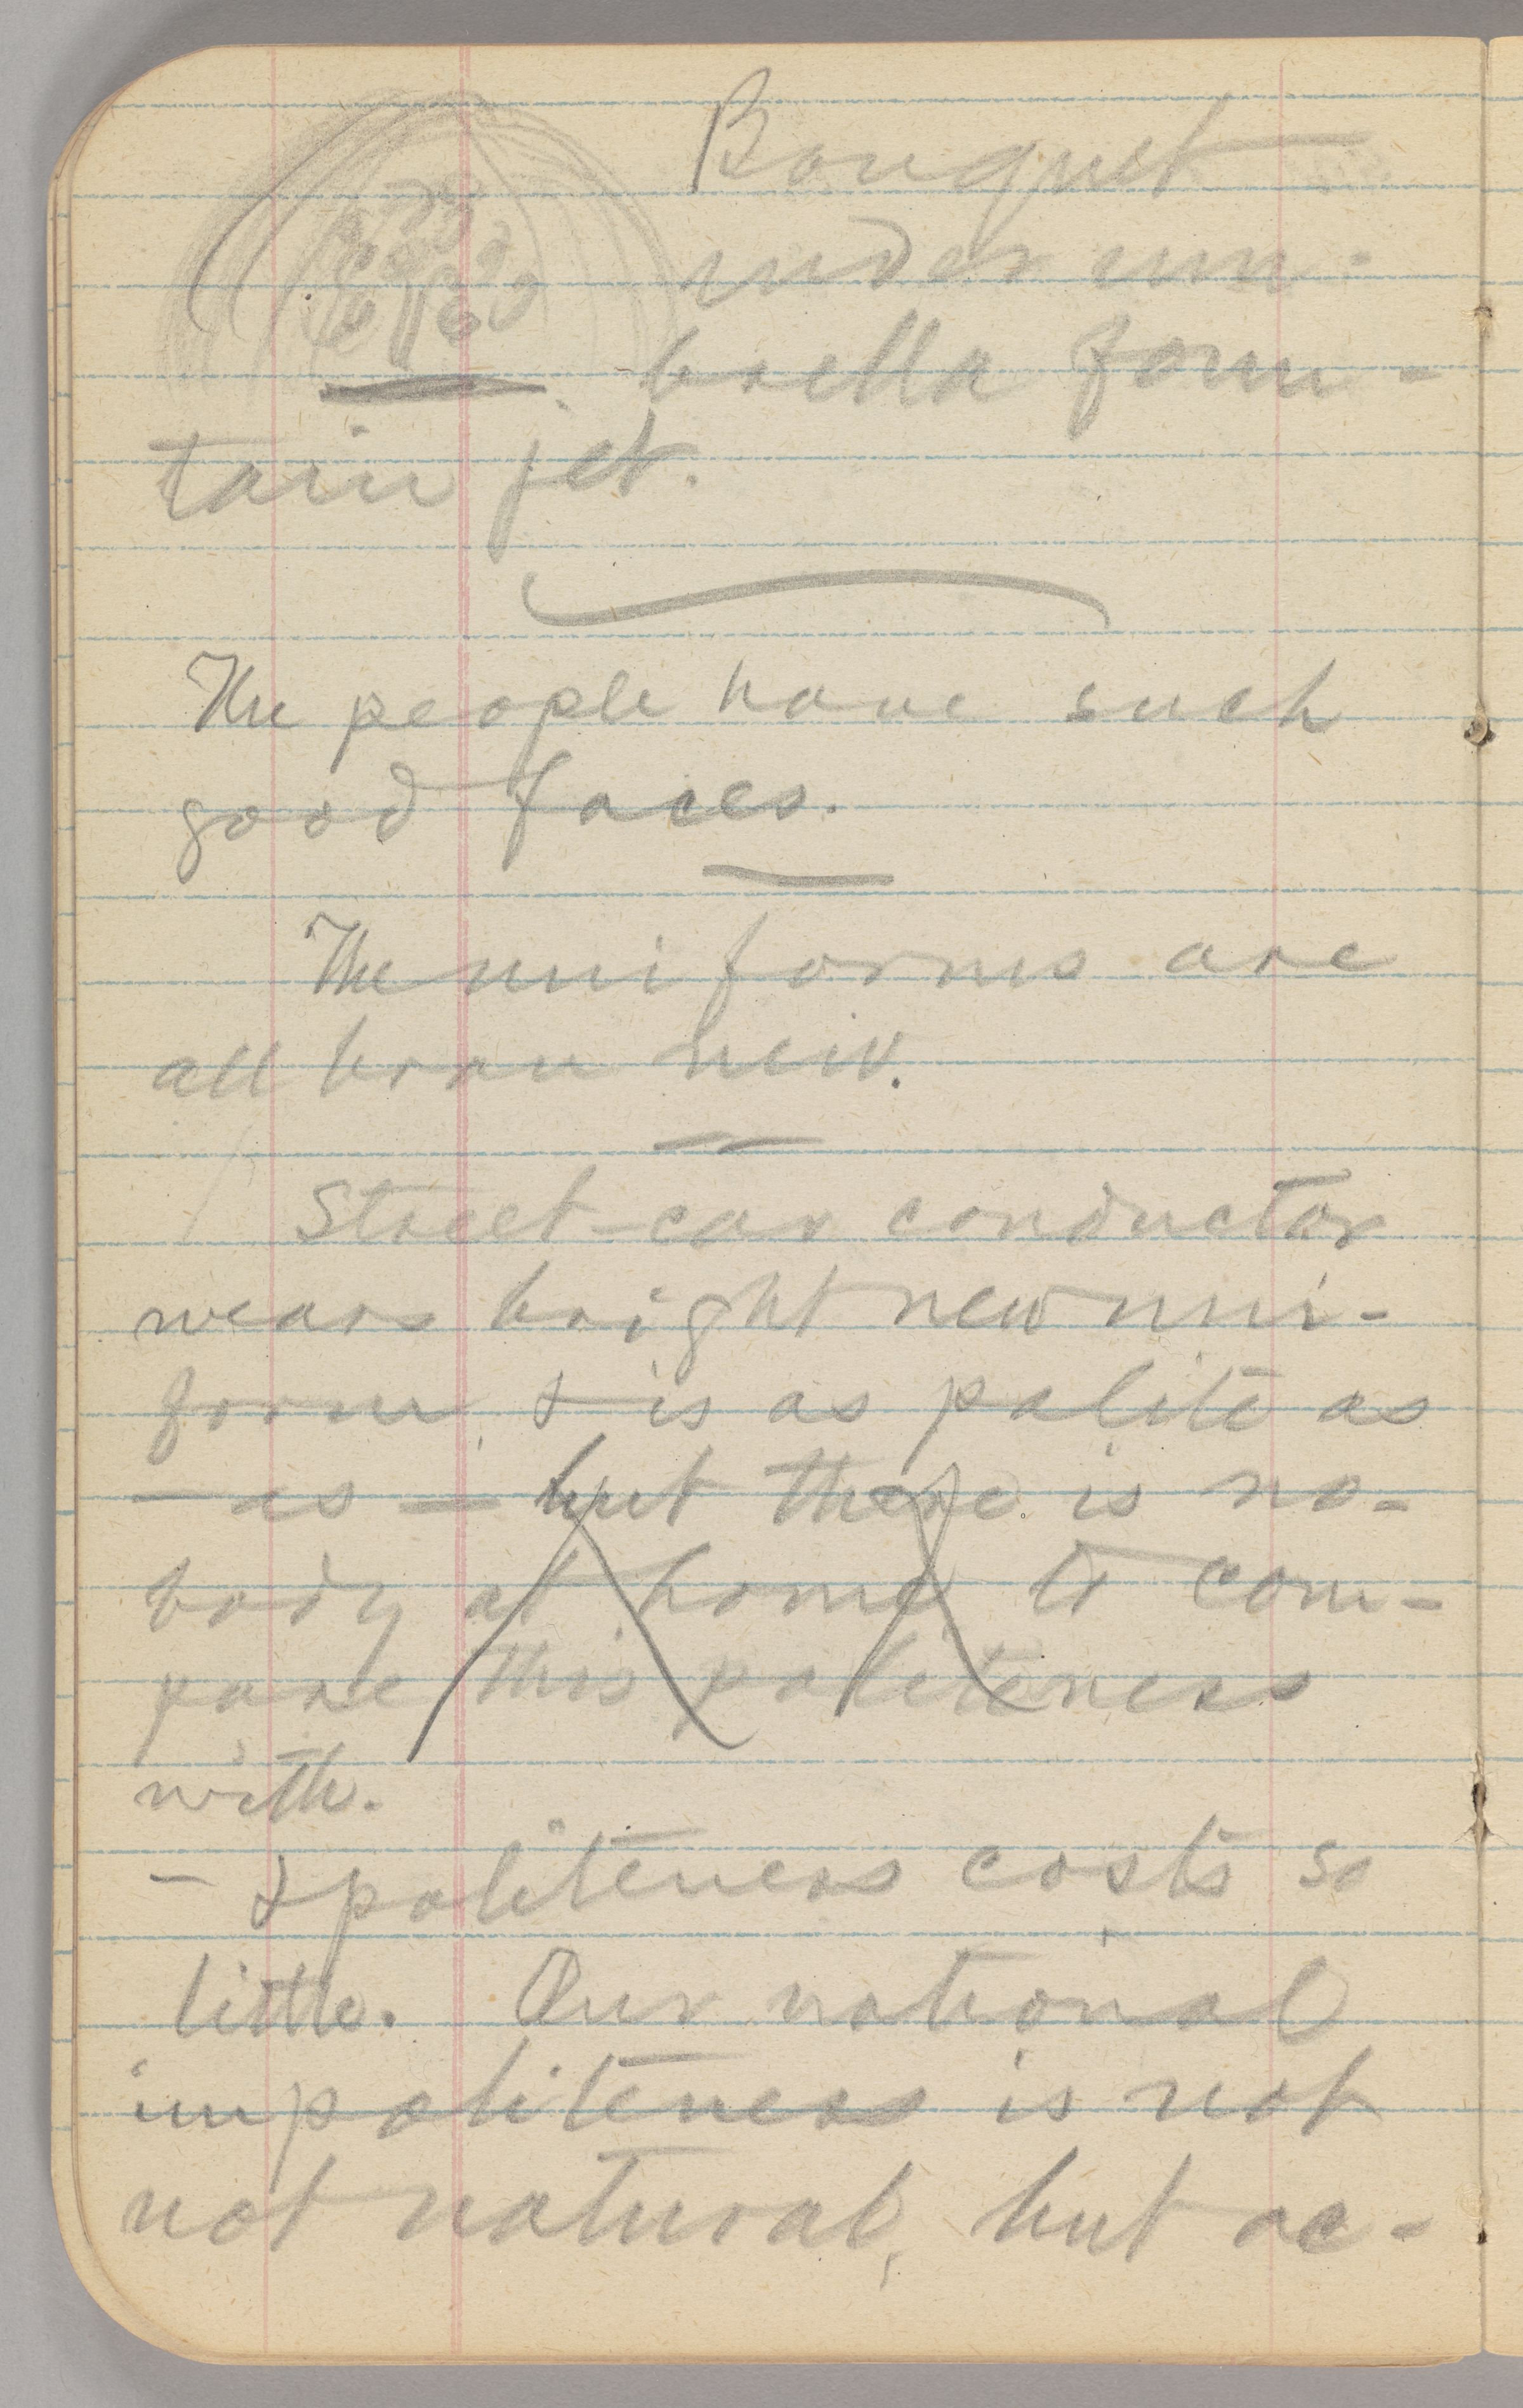 Bouquet
under um-
brella foun-
tain jet.
The people have such
good faces.
The uniforms are
all bran new.
Street-car conductor
wears bright new uni-
form, & is as polite as
— is — but there is no-
body at home to com-
pare this politeness
with.
— & politeness costs so
little. Our national
impoliteness is not
not natural, but ac-